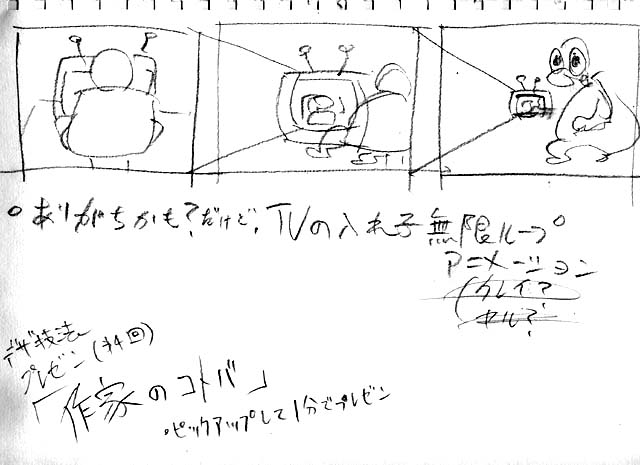 ありがちかも?だけど、TVの入れ子無限ループ
アニメーション
(クレイ?
セル?
デザ技法
プレゼン(オ4回)
「作家のコトバ」
・ピックアップして1分でプレゼン